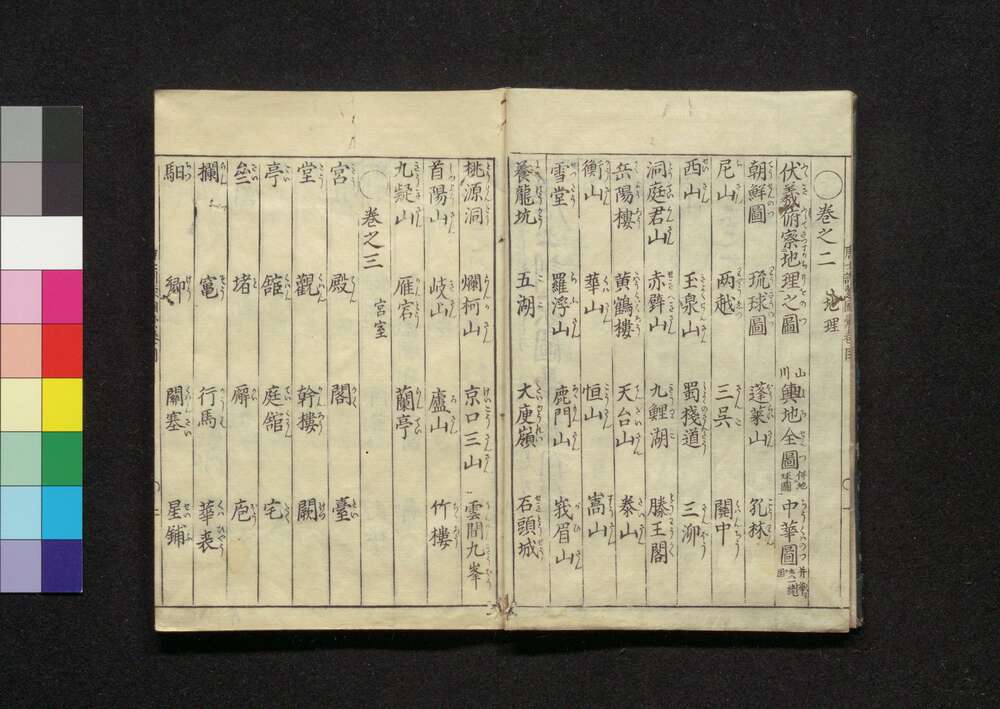 〇巻之二 地理
伏羲俯察地理之圖 山川輿地全圖 併地球圖 中華圖
朝鮮圖 琉球圖 蓬莱山 孔林
尼山 両越 三呉 關中
西山 玉泉山 蜀棧道 三泖
洞庭君山 赤壁山 九鯉湖 滕王閣
岳陽樓 黄鶴樓 天台山 泰山
衡山 華山 恒山 嵩山
雪堂 羅浮山 鹿門山 峩眉山
養龍坑 五湖 大庾嶺 石頭城
桃源洞 爛柯山 京口三山 雲間九峯
首陽山 岐山 廬山 竹樓
九疑山 雁宕 蘭亭
〇巻之三 宮室
宮 殿 閣 臺
堂 觀 幹樓 闕
亭 舘 庭舘 宅
堵 廨 庖
欄 竃 行馬 華表
馹 關塞 星鋪